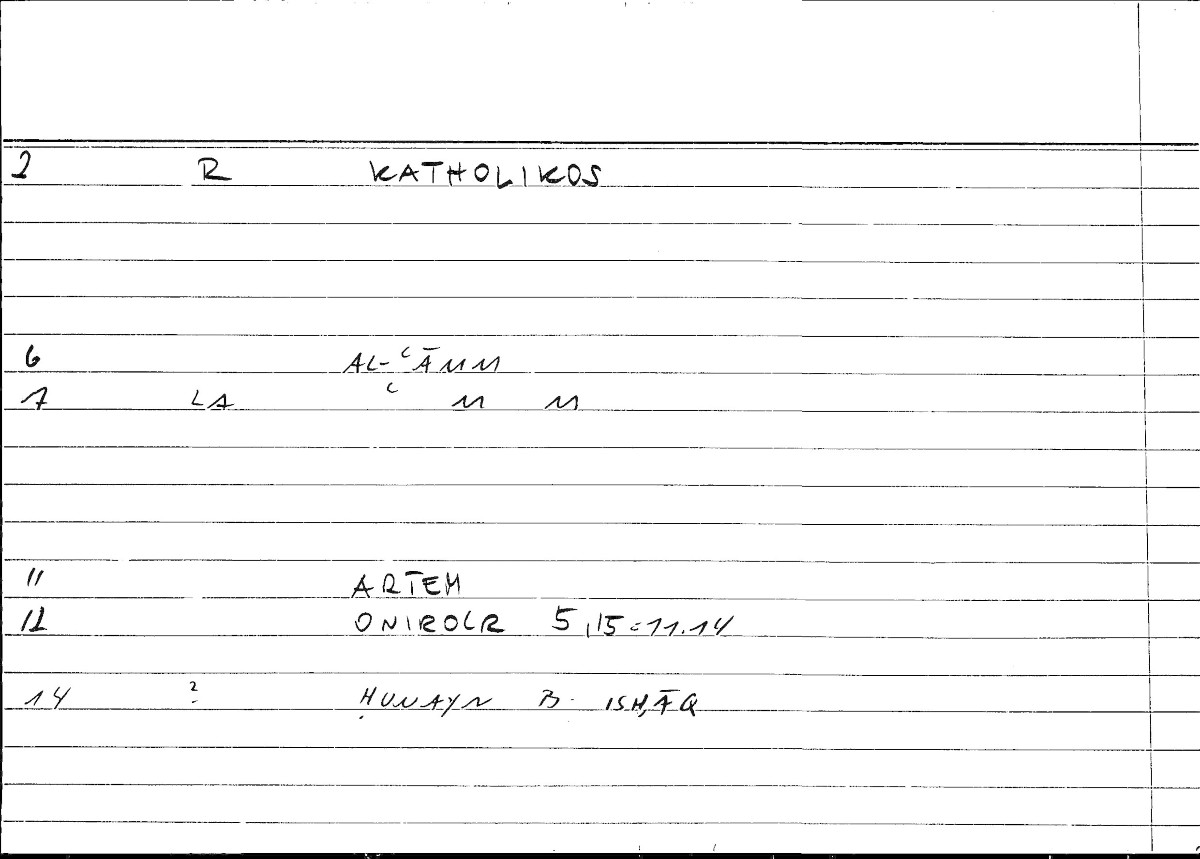 2 R KATHOLIKOS
6 AL-ʿĀMM
7 LA ʿ M M
11 ARTEM
12 ONIROCR 5,15 = 11.14
14 2 ḤUNAYN B. ISḤĀQ